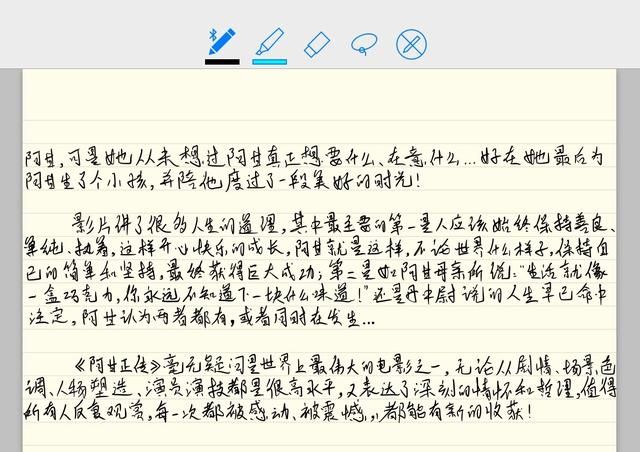 阿甘,可是她从来想过阿甘真正想要什么、在意什么...好在她最后为
阿甘生了个小孩,并陪他度过了一段美好的时光!
影片讲了很多人生的道理,其中最主要的第一是人应该始终保持善良、
单纯、执着,这样开心快乐的成长,阿甘就是这样,不论世界什么样子,保持自
己的简单和坚持,最终获得巨大成功;第二是如阿甘母亲所说:“生活就像
一盒巧克力,你永远不知道下一块什么味道!”还是丹中尉说的人生早已命中
注定,阿甘认为两者都有,或者同时在发生...
《阿甘正传》毫无疑问是世界上最伟大的电影之一,无论从剧情、场景、色
调、人物塑造、演员演技都是很高水平,又表达了深刻的情怀和哲理,值得
所有人反复观赏,每一次都被感动、被震憾,,都能有新的收获!